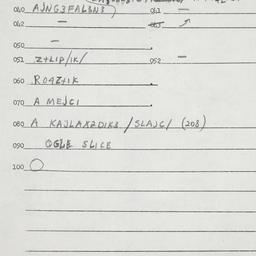 040 AJNG3FALBN3 ) 041 —
042 —
050 — .
051 Z+LIP/IK/ 052 —
060 R04Z+IK
070 A MEJCI .
080 A KAJLAX2DIK3 /SLAJC/ (208)
090 OGLE SLICE
100 O